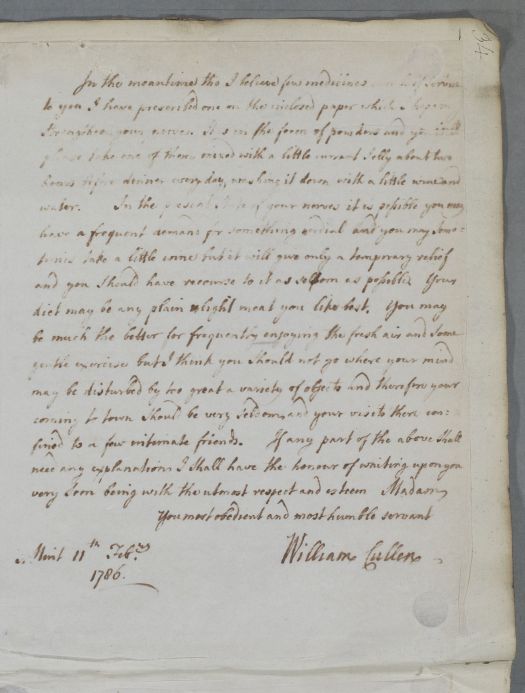 34
In the meantime tho I believe few medicines can be of service
to you I have prescribed one on the inclosed paper which I hope may
strengthen your nerves. It is in the form of powders and you will
please take one of them mixed with a little currant Jelly about two
hours before dinner every day, washing it down with a little wine and
water. In the present state of your nerves it is possible you may
have a frequent demand for something cordial and you may some=
times take a little wine but it will give only a temporary relief
and you should have recourse to it as seldom as possible. Your
diet may be any plain & light meat you like best. You may
be much the better for frequently enjoying the fresh air and some
gentle exercise but I think you should not go where your mind
may be disturbed by too great a variety of objects and therefore your
coming to town should be very seldom, and your visits there con=
fined to a few intimate friends. If any part of the above shall
need any explanation I shall have the honour of waiting upon you
very soon being with the utmost respect and esteem Madam
Your most obedient and most humble servant
William Cullen
Mint 11th Febry
1786.